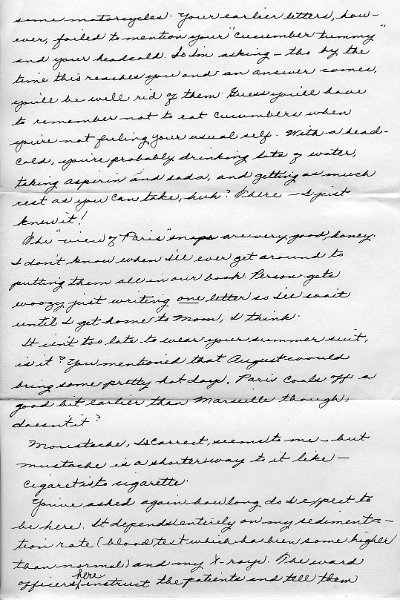 some motorcycles. Your earlier letters, how-
ever, failed to mention your "cucumber tummy"
and your headcold. So I'm asking - tho by the
time this reaches you and an answer comes,
you'll be well rid of them. Guess you'll have
to remember not to eat cucumbers when
you're not feeling your usual self. With a head-
cold, you're probably drinking lots of water,
taking aspirin and soda, and getting as much
rest as you can take, huh? There - I jist
knew it!
The "view of Paris" snaps are very good, honey.
I don't know when I'll ever get around to
putting them all in our book. Person gets
woozy just writing one letter so I'll wait
until I get home to Mom, I think.
It isn't too late to wear your summer suit,
is it? You mentioned that August would
bring some pretty hot days. Paris cools off a
good bit earlier than Marseille though,
doesn't it?
Moustache, is correct, seems to me - but
mustache is a shorter way to it like -
cigaret is to cigarette.
You've asked again how long do I expect to
be here. It depends entirely on my sedimenta-
tion rate (blood test which has been some higher
than normal) and my X-rays. The ward
officers here instruct the patients and tell them